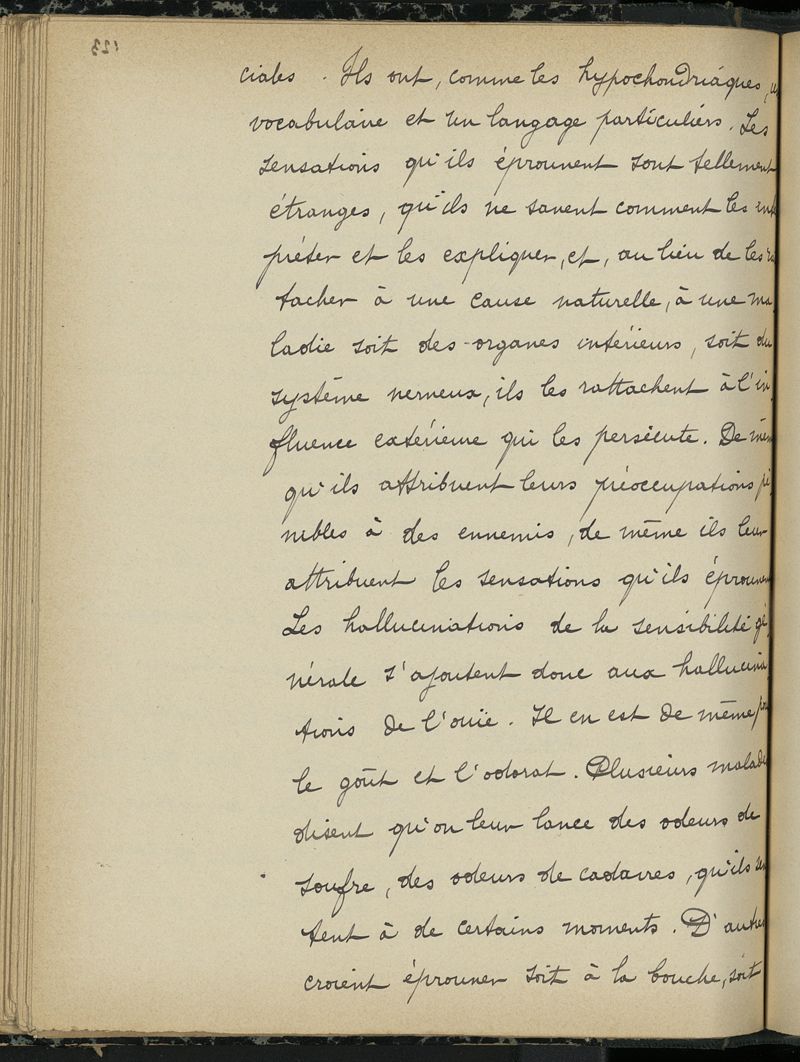 123
ciales. Ils ont, comme les hypochondriaques, un
vocabulaire et un langage particuliers. Les
sensations qu'ils éprouvent sont tellement
étranges, qu'ils ne savent comment les
préter et les expliquer, et, au lieu de les
tacher à une cause naturelle, à une ma
ladie soit des organes intérieurs, soit du
système nerveux, ils les rattachent à l'in
fluence extérieure qui les persécute. De mêm
qu'ils attribuent leurs préoccupations pé
nibles à des ennemis, de même ils leur
attribuent les sensations qu'ils éprouven
Les hallucinations de la sensibilité gé
nérale s'ajoutent donc aux hallucina
tions de l'ouïe. Il en est de même pou
le goût et l'odorat. Plusieurs malade
disent qu'on leur lance des odeurs de
soufre, des odeurs de cadavres, qu'ils sen
tent à de certains moments. D'autres
croient éprouver soit à la bouche, soit